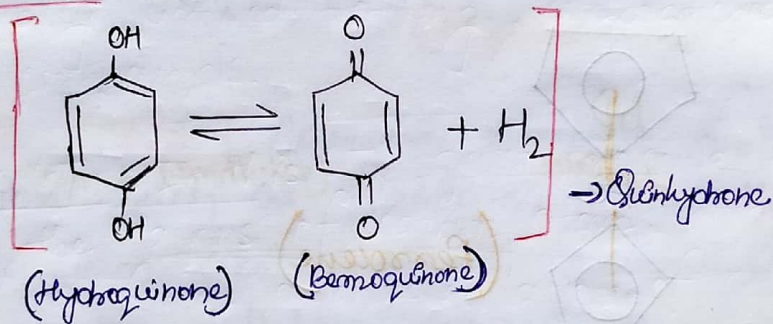 OH
O
⇌
+ H2
→ Quinhydrone
OH
O
(Hydroquinone)
(Benzoquinone)